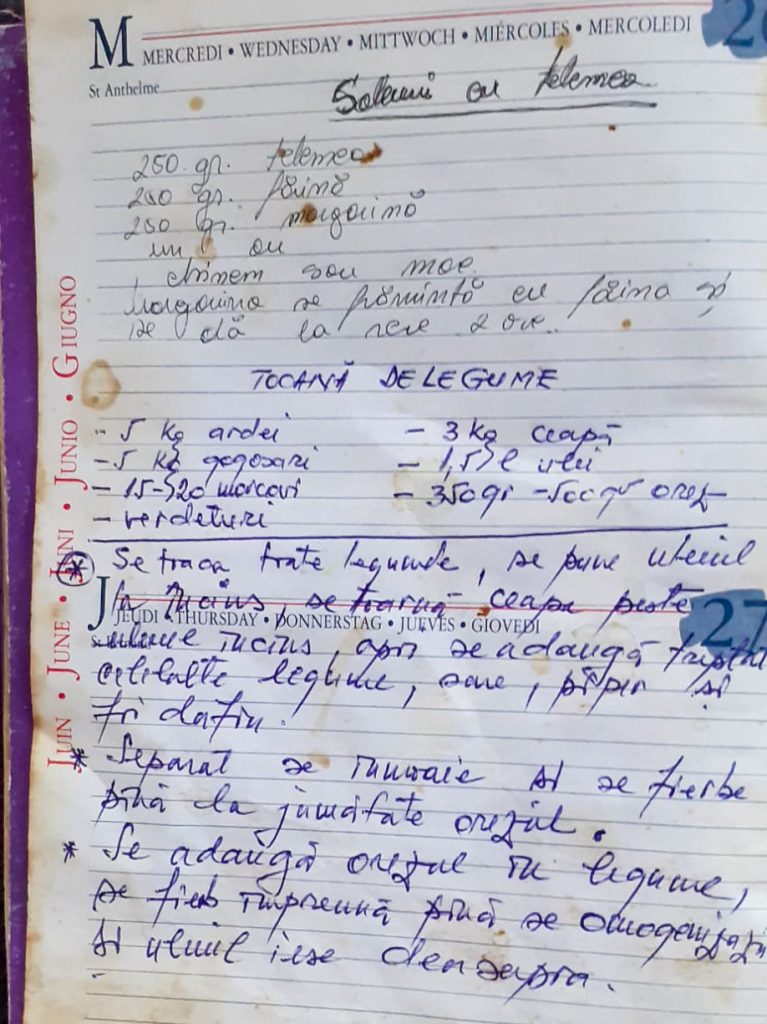 26
M MERCREDI • WEDNESDAY • MITTWOCH • MIÉRCOLES • MERCOLEDI
St Anthelme
cu telemea
250 gr. telemea
250 gr. făină
250 gr. margarină
un ou
chimen sau mac
Margarina se frământă cu făina și
se dă la rece 2 ore.
TOCANĂ DE LEGUME
- 5 kg ardei - 3 kg ceapă
- 5 kg gogosari - 1,5 l ulei
- 15-20 morcovi - 350gr - 500gr orez
- verdeturi
* Se toaca toate legumele, se pune uleiul
la incins, se toarnă ceapa peste
JEUDI • THURSDAY • DONNERSTAG • JUEVES • GIOVEDI
27
uleiul incins, apoi se adaugă treptat
celelalte legume, sare, piper si
foi dafin.
* Separat se inmoaie si se fierbe
pînă la jumătate orezul.
* Se adaugă orezul in legume,
se fierb împreună pînă se omogenizează
si uleiul iese deasupra.
JUIN • JUNE • JUNI • JUNIO • GIUGNO